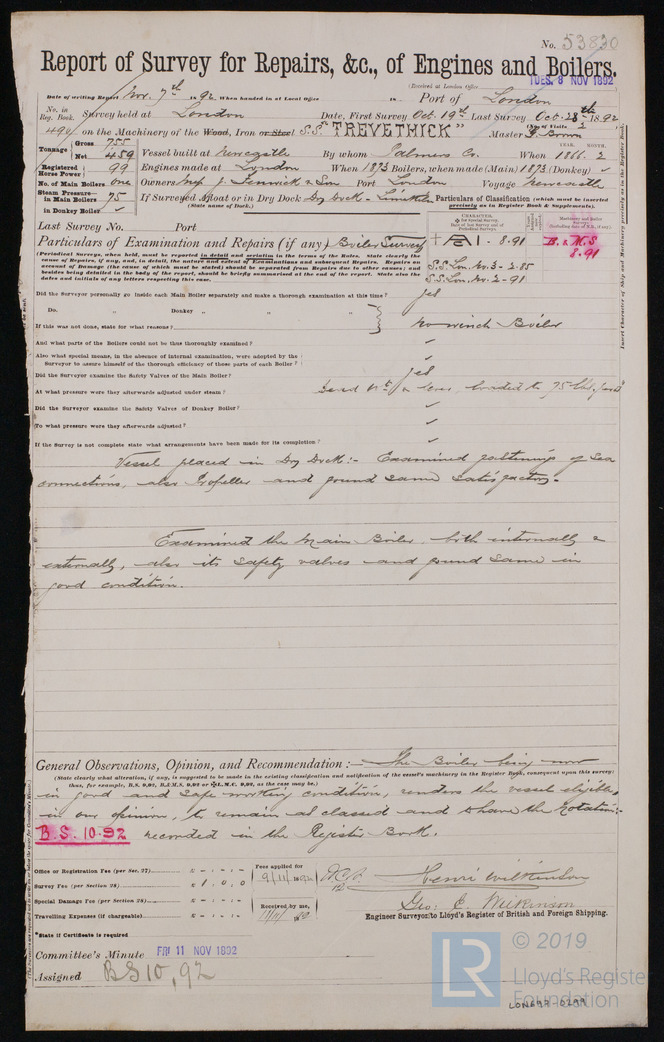 No. 53830
Report of Survey for Repairs, &c., of Engines and Boilers.
(Received at London Office
TUES. 8 NOV 1892
Date of writing Report Nov. 7th 1892. When handed in at Local Office 18 Port of London
No. in Reg. Book. Survey held at London Date, First Survey Oct. 19th Last Survey Oct. 28th 1892
(No. of Visits 2
494 on the Machinery of the Wood, Iron or Steel S.S. "TREVETHICK" Master G. Brown
Tonnage Gross 755
Net 459
Vessel built at Newcastle By whom Palmers Co. When 1866. 2
YEAR. MONTH.
Registered Horse Power 99 Engines made at London When 1873 Boilers, when made (Main) 1873 (Donkey) ✓
No. of Main Boilers one Owners Messrs J. Fenwick & Son Port London Voyage Newcastle
Steam Pressure in Main Boilers 75 If Surveyed Afloat or in Dry Dock Dry Dock - Limehouse
(State name of Dock.)
in Donkey Boiler ✓
Particulars of Classification (which must be inserted precisely as in Register Book & Supplements).
CHARACTER.
for Special Survey
Date of last Survey and of Periodical Surveys.
Machinery and Boiler Surveys
(including date of N.B., if any)
A1 - 8.91
B. & M.S
8.91
S.S. Lon. No. 3 - 2.85
S.S. Lon. No. 2 - 91
Last Survey No. Port
Particulars of Examination and Repairs (if any) Boiler Survey
(Periodical Surveys, when held, must be reported in detail and seriatim in the terms of the Rules. State clearly the
cause of Repairs, if any, and, in detail, the nature and extent of Examinations and subsequent Repairs. Repairs on
account of Damage (the cause of which must be stated) should be separated from Repairs due to other causes; and
besides being detailed in the body of the report, should be briefly summarised at the end of the report. State also the
dates and initials of any letters respecting this case.
Did the Surveyor personally go inside each Main Boiler separately and make a thorough examination at this time? yes
Do. Donkey " "
If this was not done, state for what reasons? No winch Boiler
And what parts of the Boilers could not be thus thoroughly examined? ✓
Also what special means, in the absence of internal examination, were adopted by the
Surveyor to assure himself of the thorough efficiency of those parts of each Boiler? ✓
Did the Surveyor examine the Safety Valves of the Main Boiler? yes
At what pressure were they afterwards adjusted under steam? Dead Wt. & lever, loaded to 75 lbs.
Did the Surveyor examine the Safety Valves of Donkey Boiler? ✓
To what pressure were they afterwards adjusted? ✓
If the Survey is not complete state what arrangements have been made for its completion? ✓
Vessel placed in Dry Dock:- Examined fastenings of sea
connections, also Propeller and found same satisfactory.
Examined the Main Boiler both internally &
externally, also its safety valves and found same in
good condition.
General Observations, Opinion, and Recommendation:- The Boiler being now
(State clearly what alteration, if any, is suggested to be made in the existing classification and notification of the vessel's machinery in the Register Book, consequent upon this survey:
thus, for example, B.S. 9,91, B.&M.S. 9,91 or L.M.C. 9,91, as the case may be.)
in good and safe working condition, renders the vessel eligible,
in our opinion, to remain as classed and to have the Notation:-
B.S. 10-92 recorded in the Register Book.
Office or Registration Fee (per Sec. 27) £ - . - . -
Survey Fee (per Section 28) £ 1 . 0 . 0
Special Damage Fee (per Section 28) £ - . - . -
Travelling Expenses (if chargeable) £ - . - . -
Fees applied for
9/11/1892
Received by me,
Henri Wilkinson
Geo: E. Wilkinson
Engineer Surveyor to Lloyd's Register of British and Foreign Shipping.
*State if Certificate is required
Committee's Minute FRI 11 NOV 1892
Assigned BS 10,92
LR © 2019
Lloyd's Register
Foundation
LON693-0299